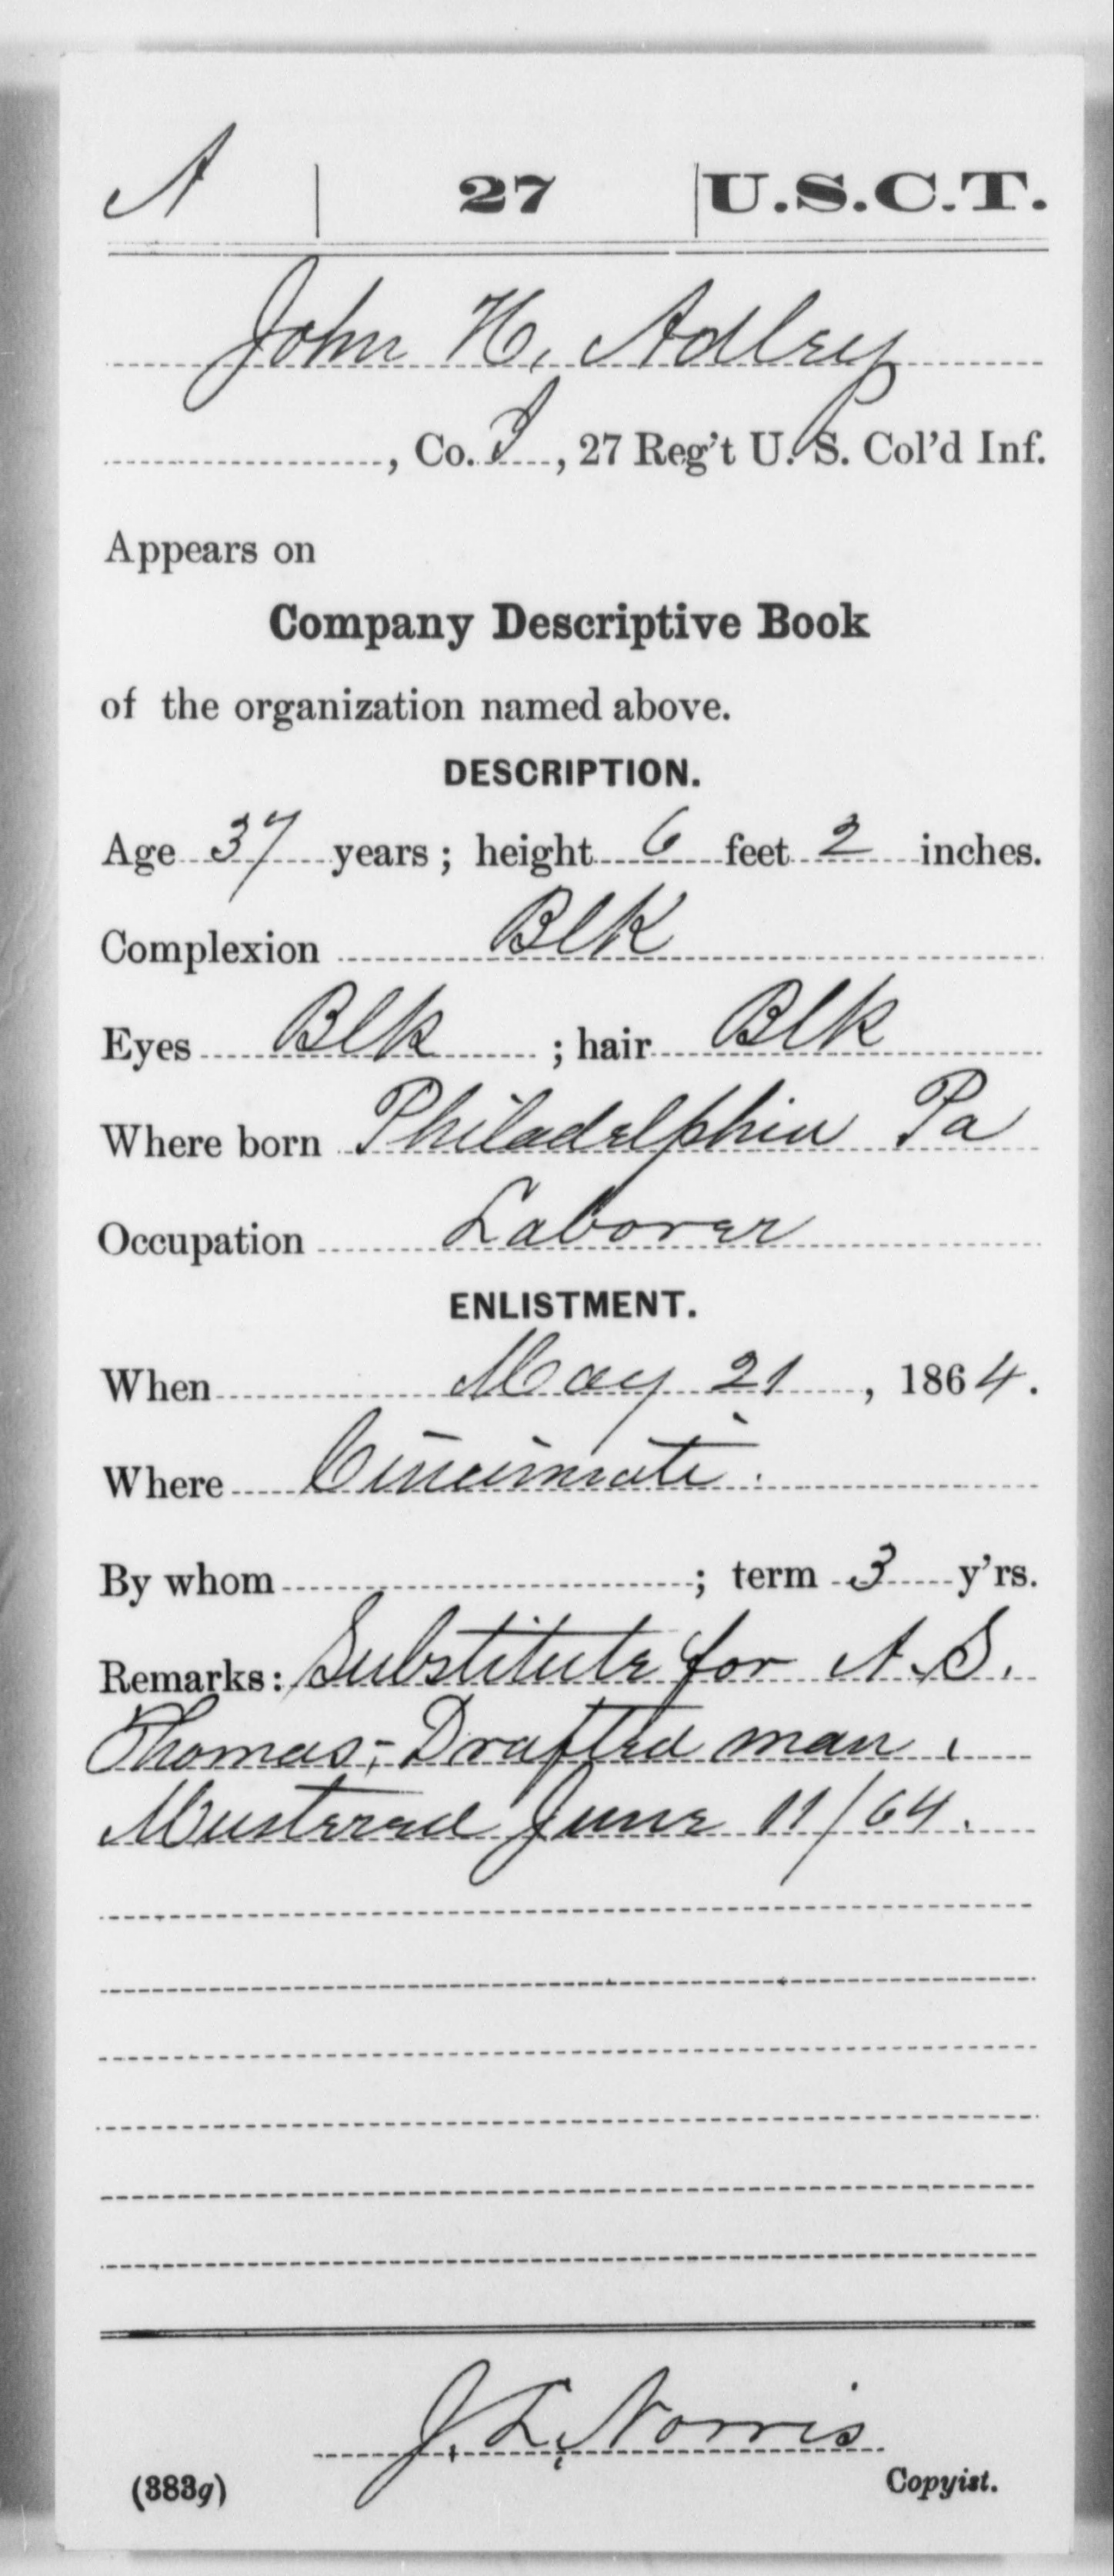 A | 27 | U.S.C.T.
John H. Adley
, Co. I, 27 Reg't U. S. Col'd Inf.
Appears on
Company Descriptive Book
of the organization named above.
DESCRIPTION.
Age 37 years; height 6 feet 2 inches.
Complexion Blk
Eyes Blk; hair Blk
Where born Philadelphia Pa
Occupation Laborer
ENLISTMENT.
When May 21, 1864.
Where Cincinnati.
By whom ; term 3 y'rs.
Remarks: Substitute for A. S.
Thomas,- Drafted man.
Mustered June 11/64.
J. L. Norris
(383g) Copyist.